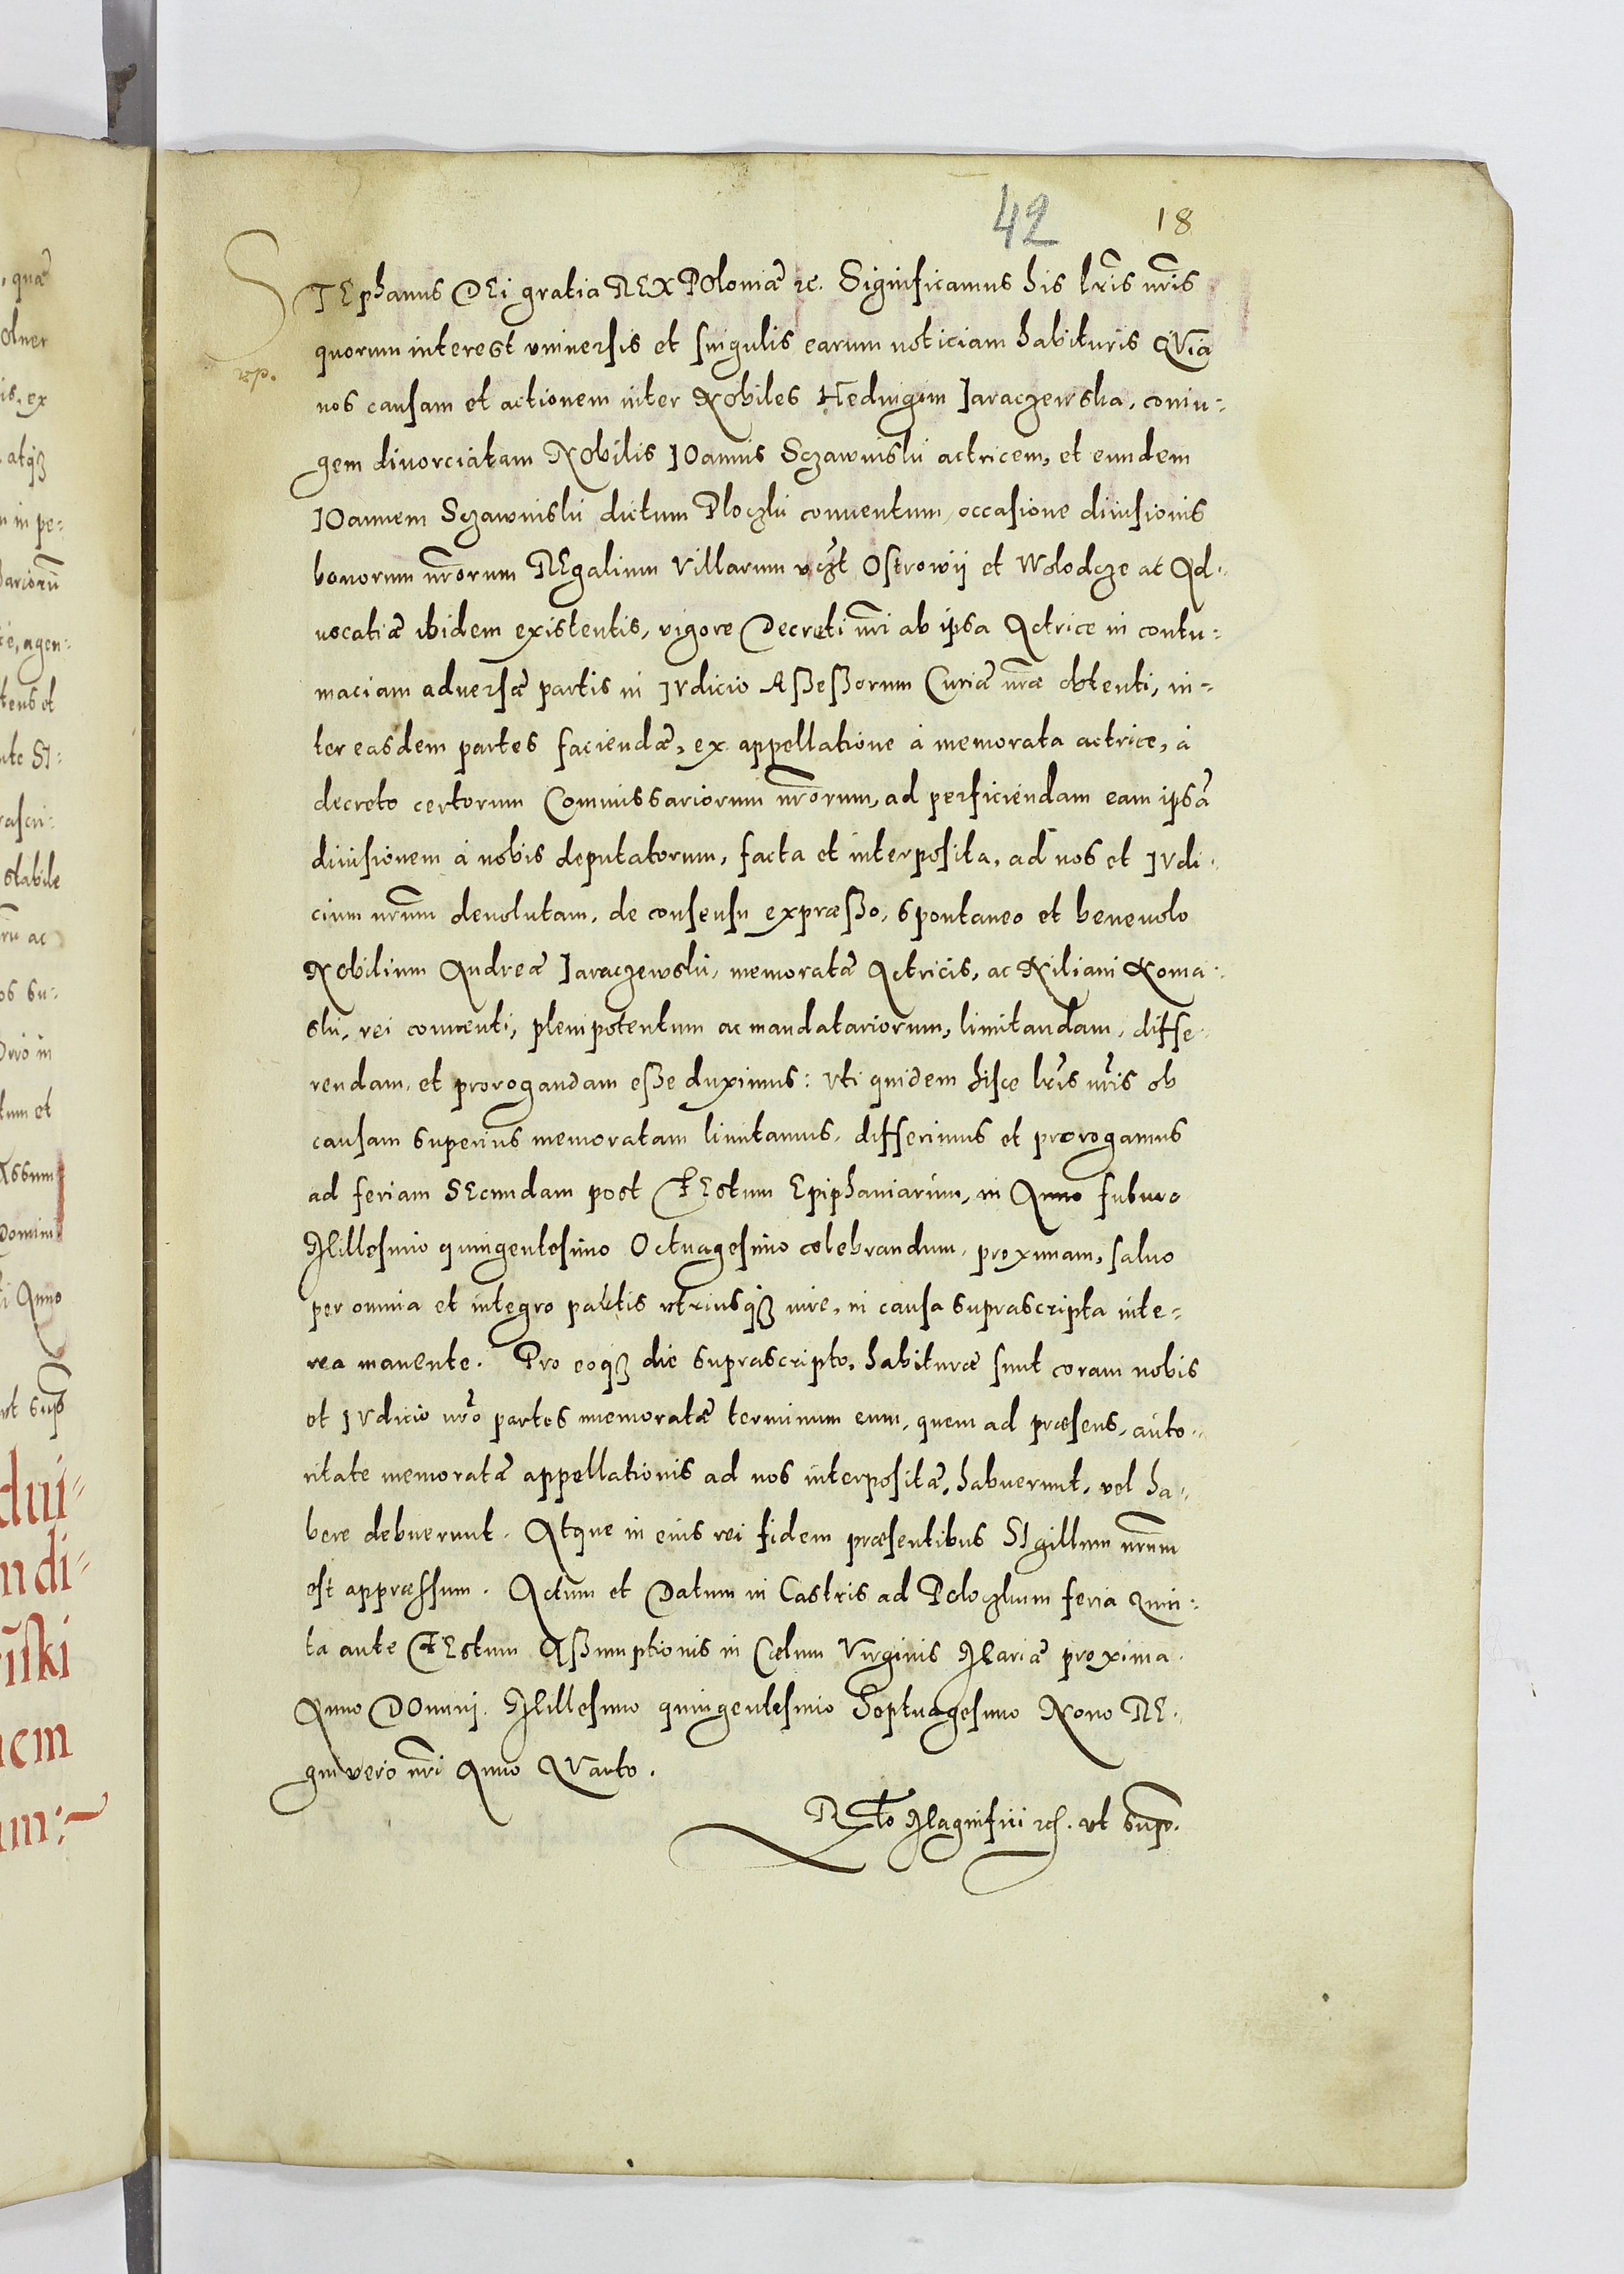 42 18
STEphanus DEi gratia REX POloniæ etc. Significamus his lr̃is nr̃is
quorum interest vniuersis et singulis earum noticiam habituris QVia
vp.
nos causam et actionem inter Nobiles Heduigim Jaraczewska, coniu-
gem diuorciatam Nobilis JOannis Sczawinski actricem, et eundem
JOannem Sczawinski dictum Ploczki conuentum, occasione diuisionis
bonorum nr̃orum REgalium Villarum vczt Ostrowij et Wolodcze ac Ad-
uocatiæ ibidem existentis, vigore Decreti nr̃i ab ipsa Actrice in contu-
maciam aduersæ partis in JVdicio Aßeßorum Curiæ nr̃æ obtenti, in-
ter easdem partes faciendæ, ex appellatione à memorata actrice, à
decreto certorum Commissariorum nr̃orum, ad perficiendam eam ipsã
diuisionem à nobis deputatorum, facta et interposita, ad nos et JVdi-
cium nr̃um deuolutam, de consensu expræßo, spontaneo et beneuolo
Nobilium Andreæ Jaraczewski, memoratæ Actricis, ac Kiliani Koma-
ski, rei conuenti, plenipotentum ac mandatariorum, limitandam, diffe-
rendam, et prorogandam eße duximus: Vti quidem hisce lr̃is nr̃is ob
causam superius memoratam limitamus, differimus et prorogamus
ad feriam SEcundam post FEstum Epiphaniarum, in Anno futuro
Millesimo quingentesimo Octuagesimo celebrandum, proximam, saluo
per omnia et integro partis vtriusqȝ iure, in causa suprascripta inte-
rea manente. Pro eoqȝ die suprascripto, habituræ sunt coram nobis
et JVdicio nr̃o partes memoratæ terminum eum, quem ad præsens, auto-
ritate memoratæ appellationis ad nos interpositæ, habuerunt, vel ha-
bere debuerunt. Atque in eius rei fidem præsentibus SIgillum nr̃um
est appræssum. Actum et Datum in Castris ad Poloczkum feria Quin-
ta ante FEstum Aßumptionis in Cælum Virginis Mariæ proxima.
Anno DOmini. Millesimo quingentesimo Septuagesimo Nono RE-
gni vero nr̃i Anno QVarto.
R̃to Magnifici etc. vt supr.